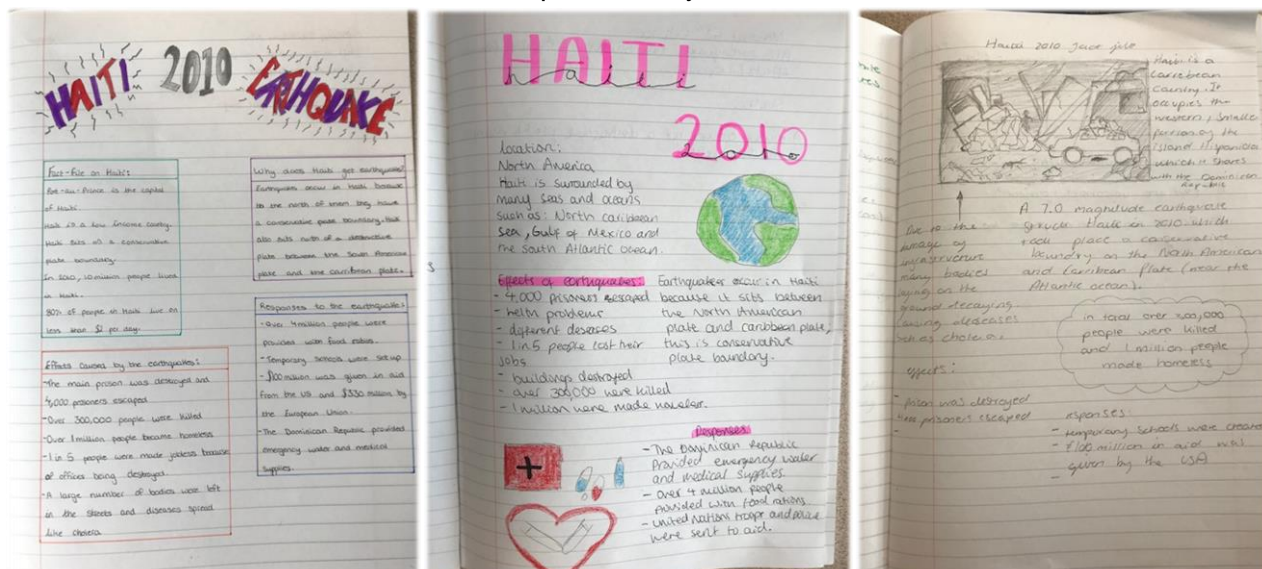 HAITI 2010 EARTHQUAKE
Fact-File on Haiti:
Port-au-Prince is the capital
of Haiti.
Haiti is a low income country.
Haiti sits on a conservative
plate boundary.
In 2010, 10 million people lived
in Haiti.
80% of people in Haiti live on
less than $2 per day.
Why does Haiti get earthquakes?
Earthquakes occur in Haiti because
to the north of them they have
a conservative plate boundary. Haiti
also sits north of a destructive
plate between the South American
plate and the carribean plate.
Effects caused by the earthquakes:
-The main prison was destroyed and
4,000 prisoners escaped
-Over 300,000 people were killed
-Over 1 million people became homeless
-1 in 5 people were made jobless because
of offices being destroyed.
-A large number of bodies were left
in the streets and diseases spread
like cholera.
Responses to the earthquakes:
-Over 4 million people were
provided with food rations.
-Temporary schools were set up
-$100 million was given in aid
from the US and $330 million by
the European Union.
-The Dominican Republic provided
emergency water and medical
supplies.
HAITI
haiti
2010
location:
North America
Haiti is surrounded by
many seas and oceans
such as: North caribbean
Sea, Gulf of Mexico and
the south Atlantic ocean.
Effects of earthquakes:
- 4,000 prisoners escaped
- helth problems
- different diseases
- 1 in 5 people lost their
jobs
- buildings destroyed
- over 300,000 were killed
- 1 million were made homeless.
Earthquakes occur in Haiti
because it sits between
the North American
plate and caribbean plate,
this is conservative
plate boundary.
Responses
- The Dominican Republic
Provided emergency water
and medical supplies.
- over 4 million people
provided with food rations
- united Nations troops and police
were sent to aid.
Haiti 2010
Haiti is a
Carribean
Country. It
occupies the
western, smaller
portion of the
island Hispaniola
which it shares
with the Dominican
Republic
A 7.0 magnitude earthquake
struck Haiti in 2010 which
took place a conservative
boundry on the North American
and Carribean Plate (near the
Atlantic ocean).
Due to the
damage of
many bodies
laying on the
ground decaying
causing diseases
such as cholera.
in total over 300,000
people were killed
and 1 million people
made homeless
effects:
- prison was destroyed
prisoners escaped
-
rsponses:
- temporary schools were created
- $100 million in aid was
given by the USA
-